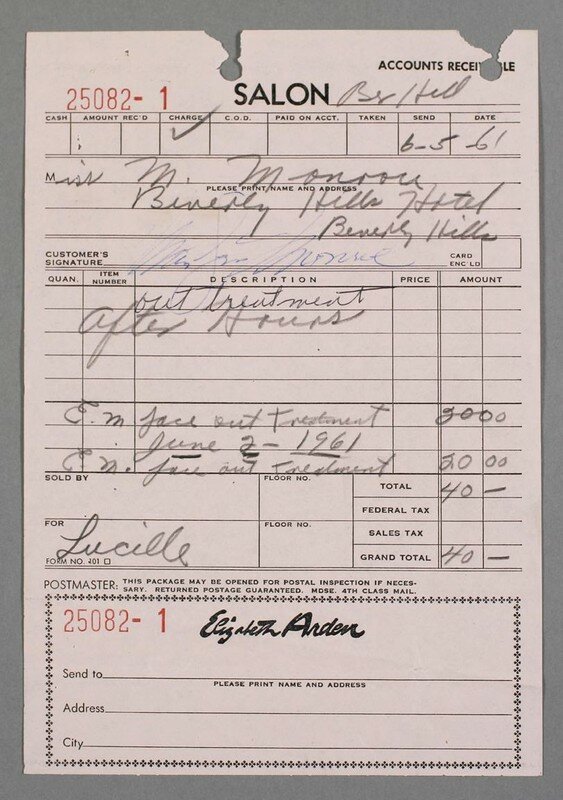 ACCOUNTS RECEI BLE
25082- 1
SALON Bev Hill
CASH AMOUNT REC'D CHARGE C.O.D. PAID ON ACCT. TAKEN SEND DATE
✓ 6-5-61
Miss M. Monroe
PLEASE PRINT NAME AND ADDRESS
Beverly Hills Hotel
Beverly Hills
CUSTOMER'S SIGNATURE Marilyn Monroe CARD ENC LD
QUAN. ITEM NUMBER DESCRIPTION PRICE AMOUNT
out treatment
After Hours
E.M face out Treatment 20 00
June 2-1961
E M. face out Treatment 20 00
SOLD BY FLOOR NO. TOTAL 40 -
FEDERAL TAX
FOR FLOOR NO. SALES TAX
Lucille
FORM NO. 401 GRAND TOTAL 40 -
POSTMASTER: THIS PACKAGE MAY BE OPENED FOR POSTAL INSPECTION IF NECES-
SARY. RETURNED POSTAGE GUARANTEED. MDSE. 4TH CLASS MAIL.
25082- 1 Elizabeth Arden
Send to
PLEASE PRINT NAME AND ADDRESS
Address
City